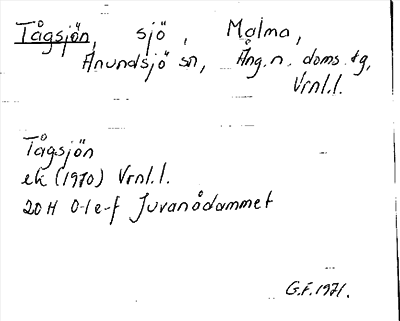 Tågsjön, sjö, Malma,
Anundsjö sn, Ång. n. doms. tg,
Vrnl.l.
Tågsjön
ek (1970) Vrnl.l.
20H 0-1 e-f Juvanådammet
G.F. 1971.